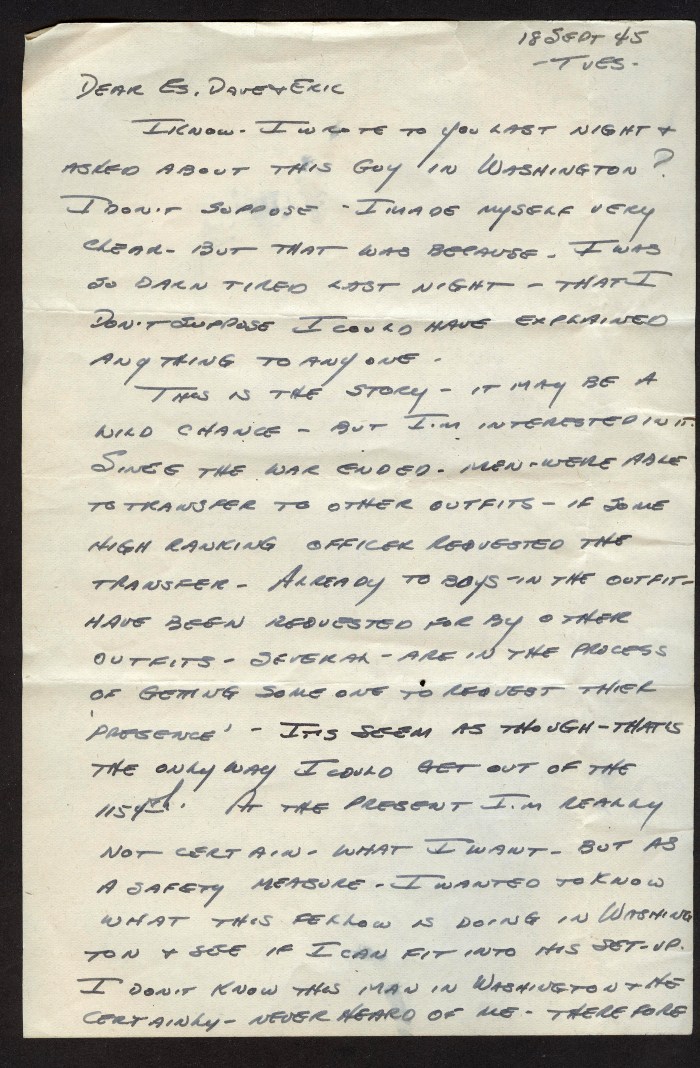 18 SEPT 45
- TUES -
DEAR ES, DAVE & ERIC
I KNOW - I WROTE TO YOU LAST NIGHT &
ASKED ABOUT THIS GUY IN WASHINGTON?
I DON'T SUPPOSE - I MADE MYSELF VERY
CLEAR - BUT THAT WAS BECAUSE - I WAS
SO DARN TIRED LAST NIGHT - THAT I
DON'T SUPPOSE I COULD HAVE EXPLAINED
ANYTHING TO ANYONE -
THIS IS THE STORY - IT MAY BE A
WILD CHANCE - BUT I'M INTERESTED IN IT.
SINCE THE WAR ENDED - MEN - WERE ABLE
TO TRANSFER TO OTHER OUTFITS - IF SOME
HIGH RANKING OFFICER REQUESTED THE
TRANSFER - ALREADY TO BOYS - IN THE OUTFIT -
HAVE BEEN REQUESTED FOR BY OTHER
OUTFITS - SEVERAL - ARE IN THE PROCESS
OF GETTING SOME ONE TO REQUEST THIER
'PRESENCE' - ITS SEEM AS THOUGH - THAT'S
THE ONLY WAY I COULD GET OUT OF THE
1154th. AT THE PRESENT I'M REALLY
NOT CERTAIN - WHAT I WANT - BUT AS
A SAFETY MEASURE - I WANTED TO KNOW
WHAT THIS FELLOW IS DOING IN WASHING
TON & SEE IF I CAN FIT INTO HIS SET-UP.
I DON'T KNOW THIS MAN IN WASHINGTON & HE
CERTAINLY - NEVER HEARD OF ME - THEREFORE